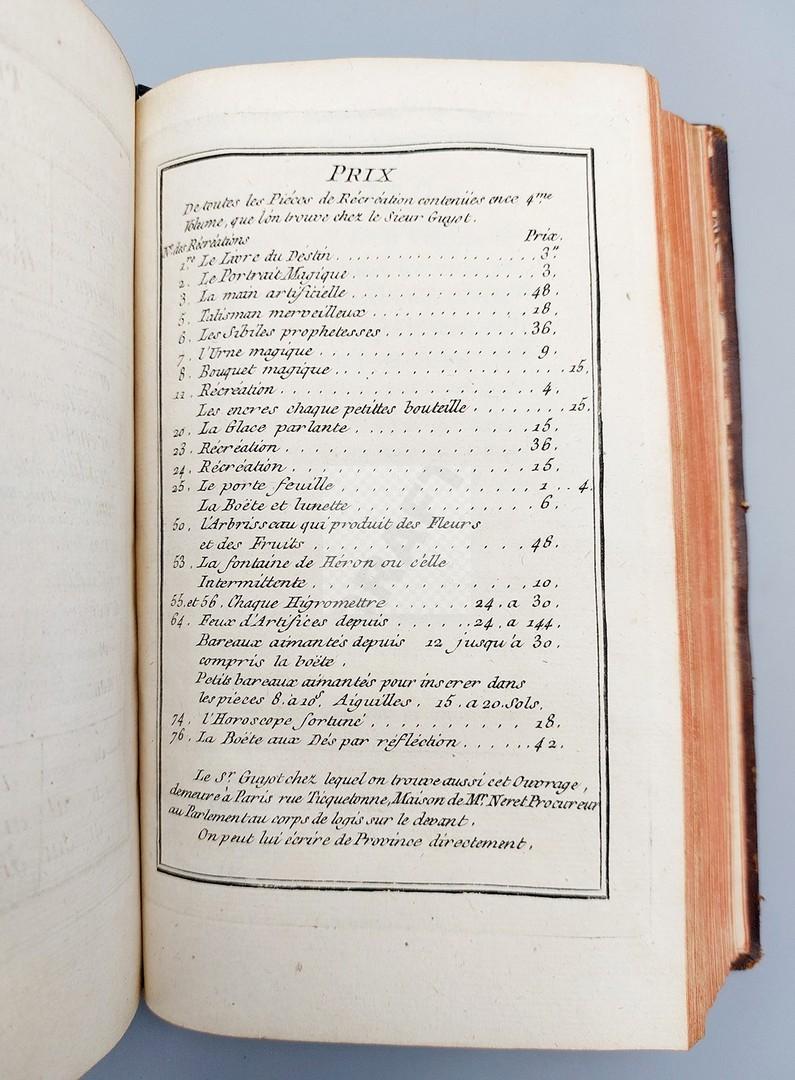 PRIX
De toutes les Piéces de Récréation contenües ence 4.me
Volume, que lon trouve chez le Sieur Guyot.
N.os des Récréations Prix.
1.re Le Livre du Destin . . . . . . . . . . . 3."
2. Le Portrait Magique . . . . . . . . . . . 3.
3. La main artificielle . . . . . . . . . . . 48.
5. Talisman merveilleux . . . . . . . . . . 18.
6. Les Sibiles prophetesses . . . . . . . . . 36.
7. l'Urne magique . . . . . . . . . . . . 9.
8. Bouquet magique . . . . . . . . . . . . . 15.
11. Récréation . . . . . . . . . . . . . . 4.
Les encres chaque petittes bouteille . . . . . . . 15.
20. La Glace parlante . . . . . . . . . . 15.
23. Récréation . . . . . . . . . . . . . . 36.
24. Récréation . . . . . . . . . . . . . . 15.
25. Le porte feuille . . . . . . . . . . . 1 . . 4.
La Boëte et lunette . . . . . . . . . . 6.
50. l'Arbrisseau qui produit des Fleurs
et des Fruits . . . . . . . . . . . . 48.
53. La fontaine de Héron ou celle
Intermittente . . . . . . . . . . . . 10.
55. et 56. Chaque Higromettre . . . . . . 24. a 30.
64. Feux d'Artifices depuis . . . . . . 24. a 144.
Bareaux aimantés depuis 12 jusqu'à 30.
compris la boëte.
Petits bareaux aimantés pour inserer dans
les pieces 8. à 10s. Aiguilles. 15. a 20. Sols.
74. l'Horoscope fortuné . . . . . . . . . . 18.
76. La Boëte aux Dés par réfléction . . . . . . 42.
Le Sr. Guyot chez lequel on trouve aussi cet Ouvrage,
demeure à Paris rue Ticquetonne, Maison de Mr. Neret Procureur
au Parlement au corps de logis sur le devant.
On peut lui écrire de Province directement.